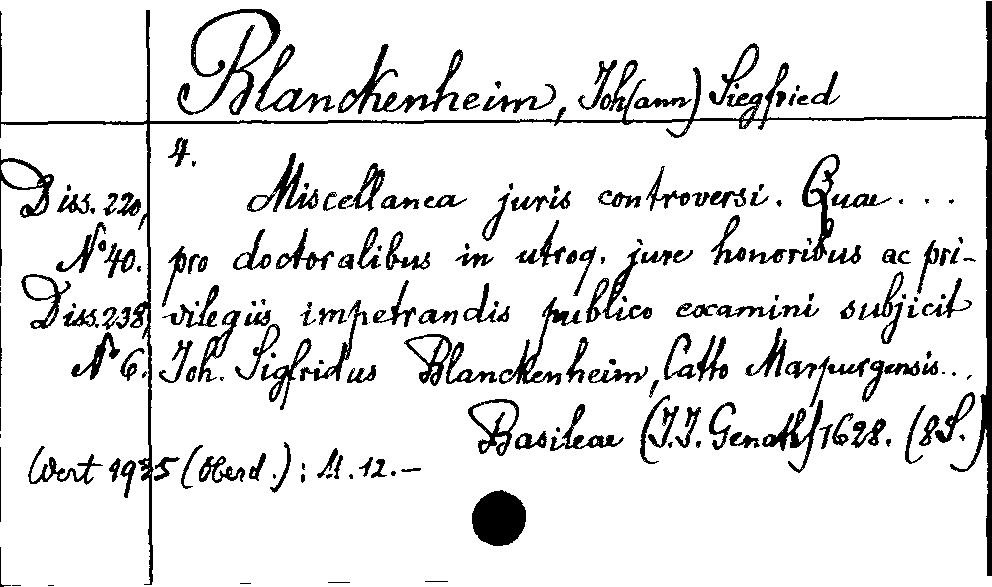 Blanckenheim, Joh(ann) Siegfried
4.
Diss. 220, Miscellanea juris controversi. Quae . . .
No 40. pro doctoralibus in utroq. jure honoribus ac pri-
Diss. 238, vilegiis impetrandis publico examini subjicit
No 6. Joh. Sigfridus Blanckenheim, Catto Marpurgensis...
Basileae (J.J. Genath) 1628. (8 S.)
Wert 1935 (Oberd.): M. 12.—